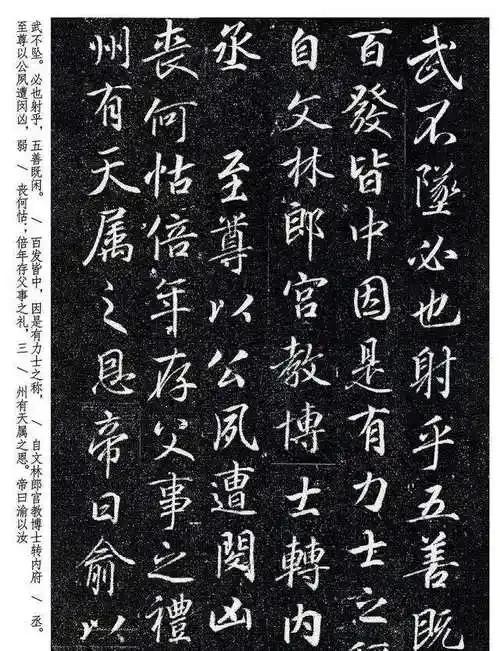 武不墜必也射乎五善既
百發皆中因是有力士之
自文林郎官教博士轉内
丞 至尊以公夙遭閔凶
喪何怙倍年存父事之禮
州有天属之恩帝曰俞以
武不坠。必也射乎，五善既闲。 \ 百发皆中，因是有力士之称， \ 自文林郎官教博士转内府 \ 丞。
至尊以公夙遭闵凶，弱 \ 丧何怙；倍年存父事之礼，三 \ 州有天属之恩。帝曰渝以汝